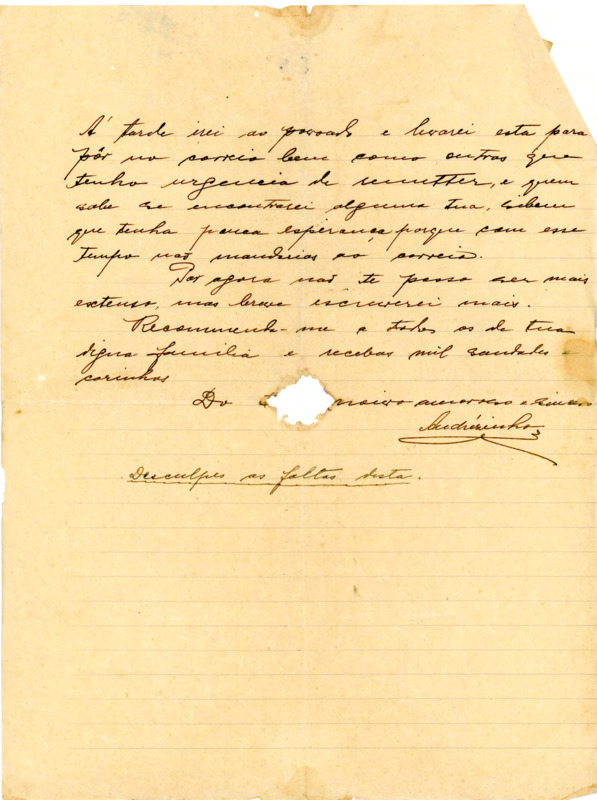 Á tarde irei ao povoado e levarei esta para
pôr no correio bem como outras que
tenho urgencia de remetter, e quem
sabe se encontrarei alguma tua, sebem
que tenha pouca esperança porque com esse
tempo não mandarias ao correio.
Por agora não te posso ser mais
extenso, mas breve escreverei mais.
Recommenda-me a todos os de tua
digna familia e recebas mil saudades e
carinhos
Do noivo amoroso e sincero
Andrézinho
Desculpes as faltas desta.